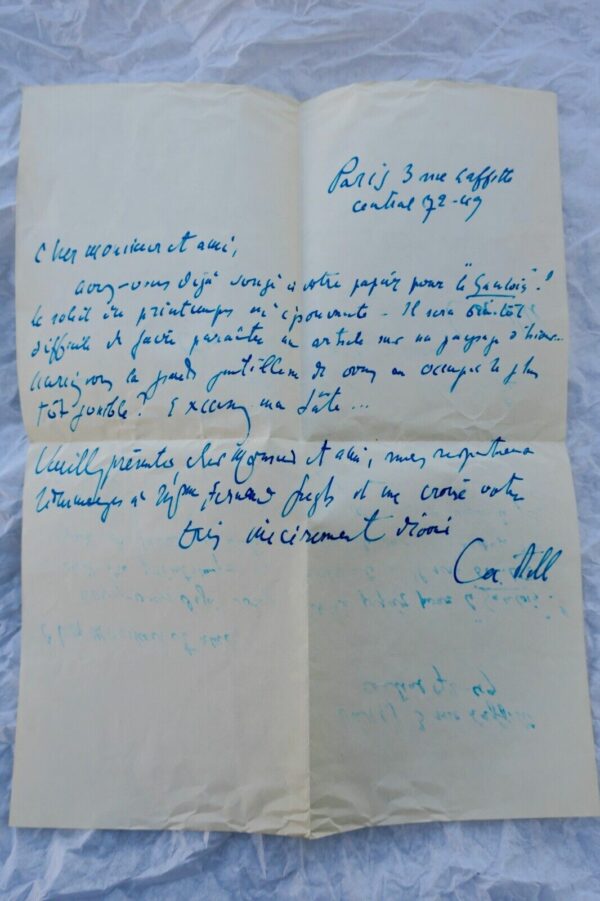 Paris 3 rue Laffitte
Central 72-49
Cher Monsieur et ami,
avez-vous déjà songé à votre papier pour "le Gaulois"?
le soleil du printemps m'épouvante - Il sera bientôt
difficile de faire paraître un article sur un paysage d'hiver...
la grande gentillesse de vous en occuper le plus
tôt possible? Excusez ma hâte...
Veuillez présenter, cher Monsieur et ami, mes respectueux
hommages à Mme Fernand Gregh et me croire votre
très sincèrement dévoué